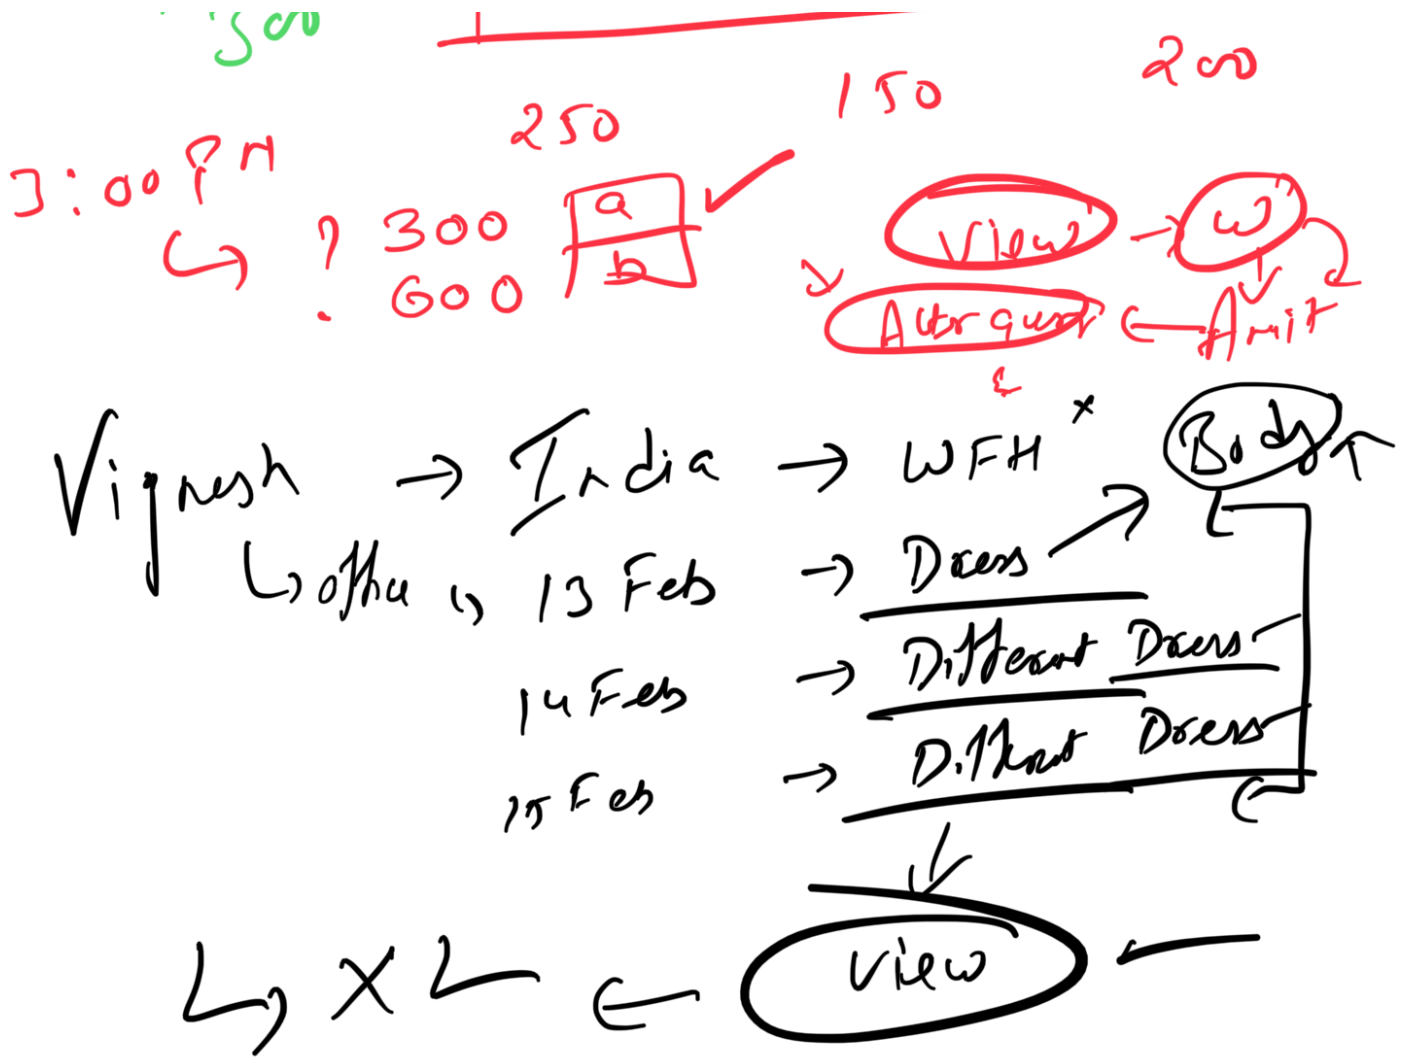 300
200
150
250
3:00 PM
? 300 a
600 b
View → W
Amit
Vignesh → India → WFH x Body
↳ office 13 Feb → Dress
14 Feb → Different Dress
15 Feb → Different Dress
View
XL